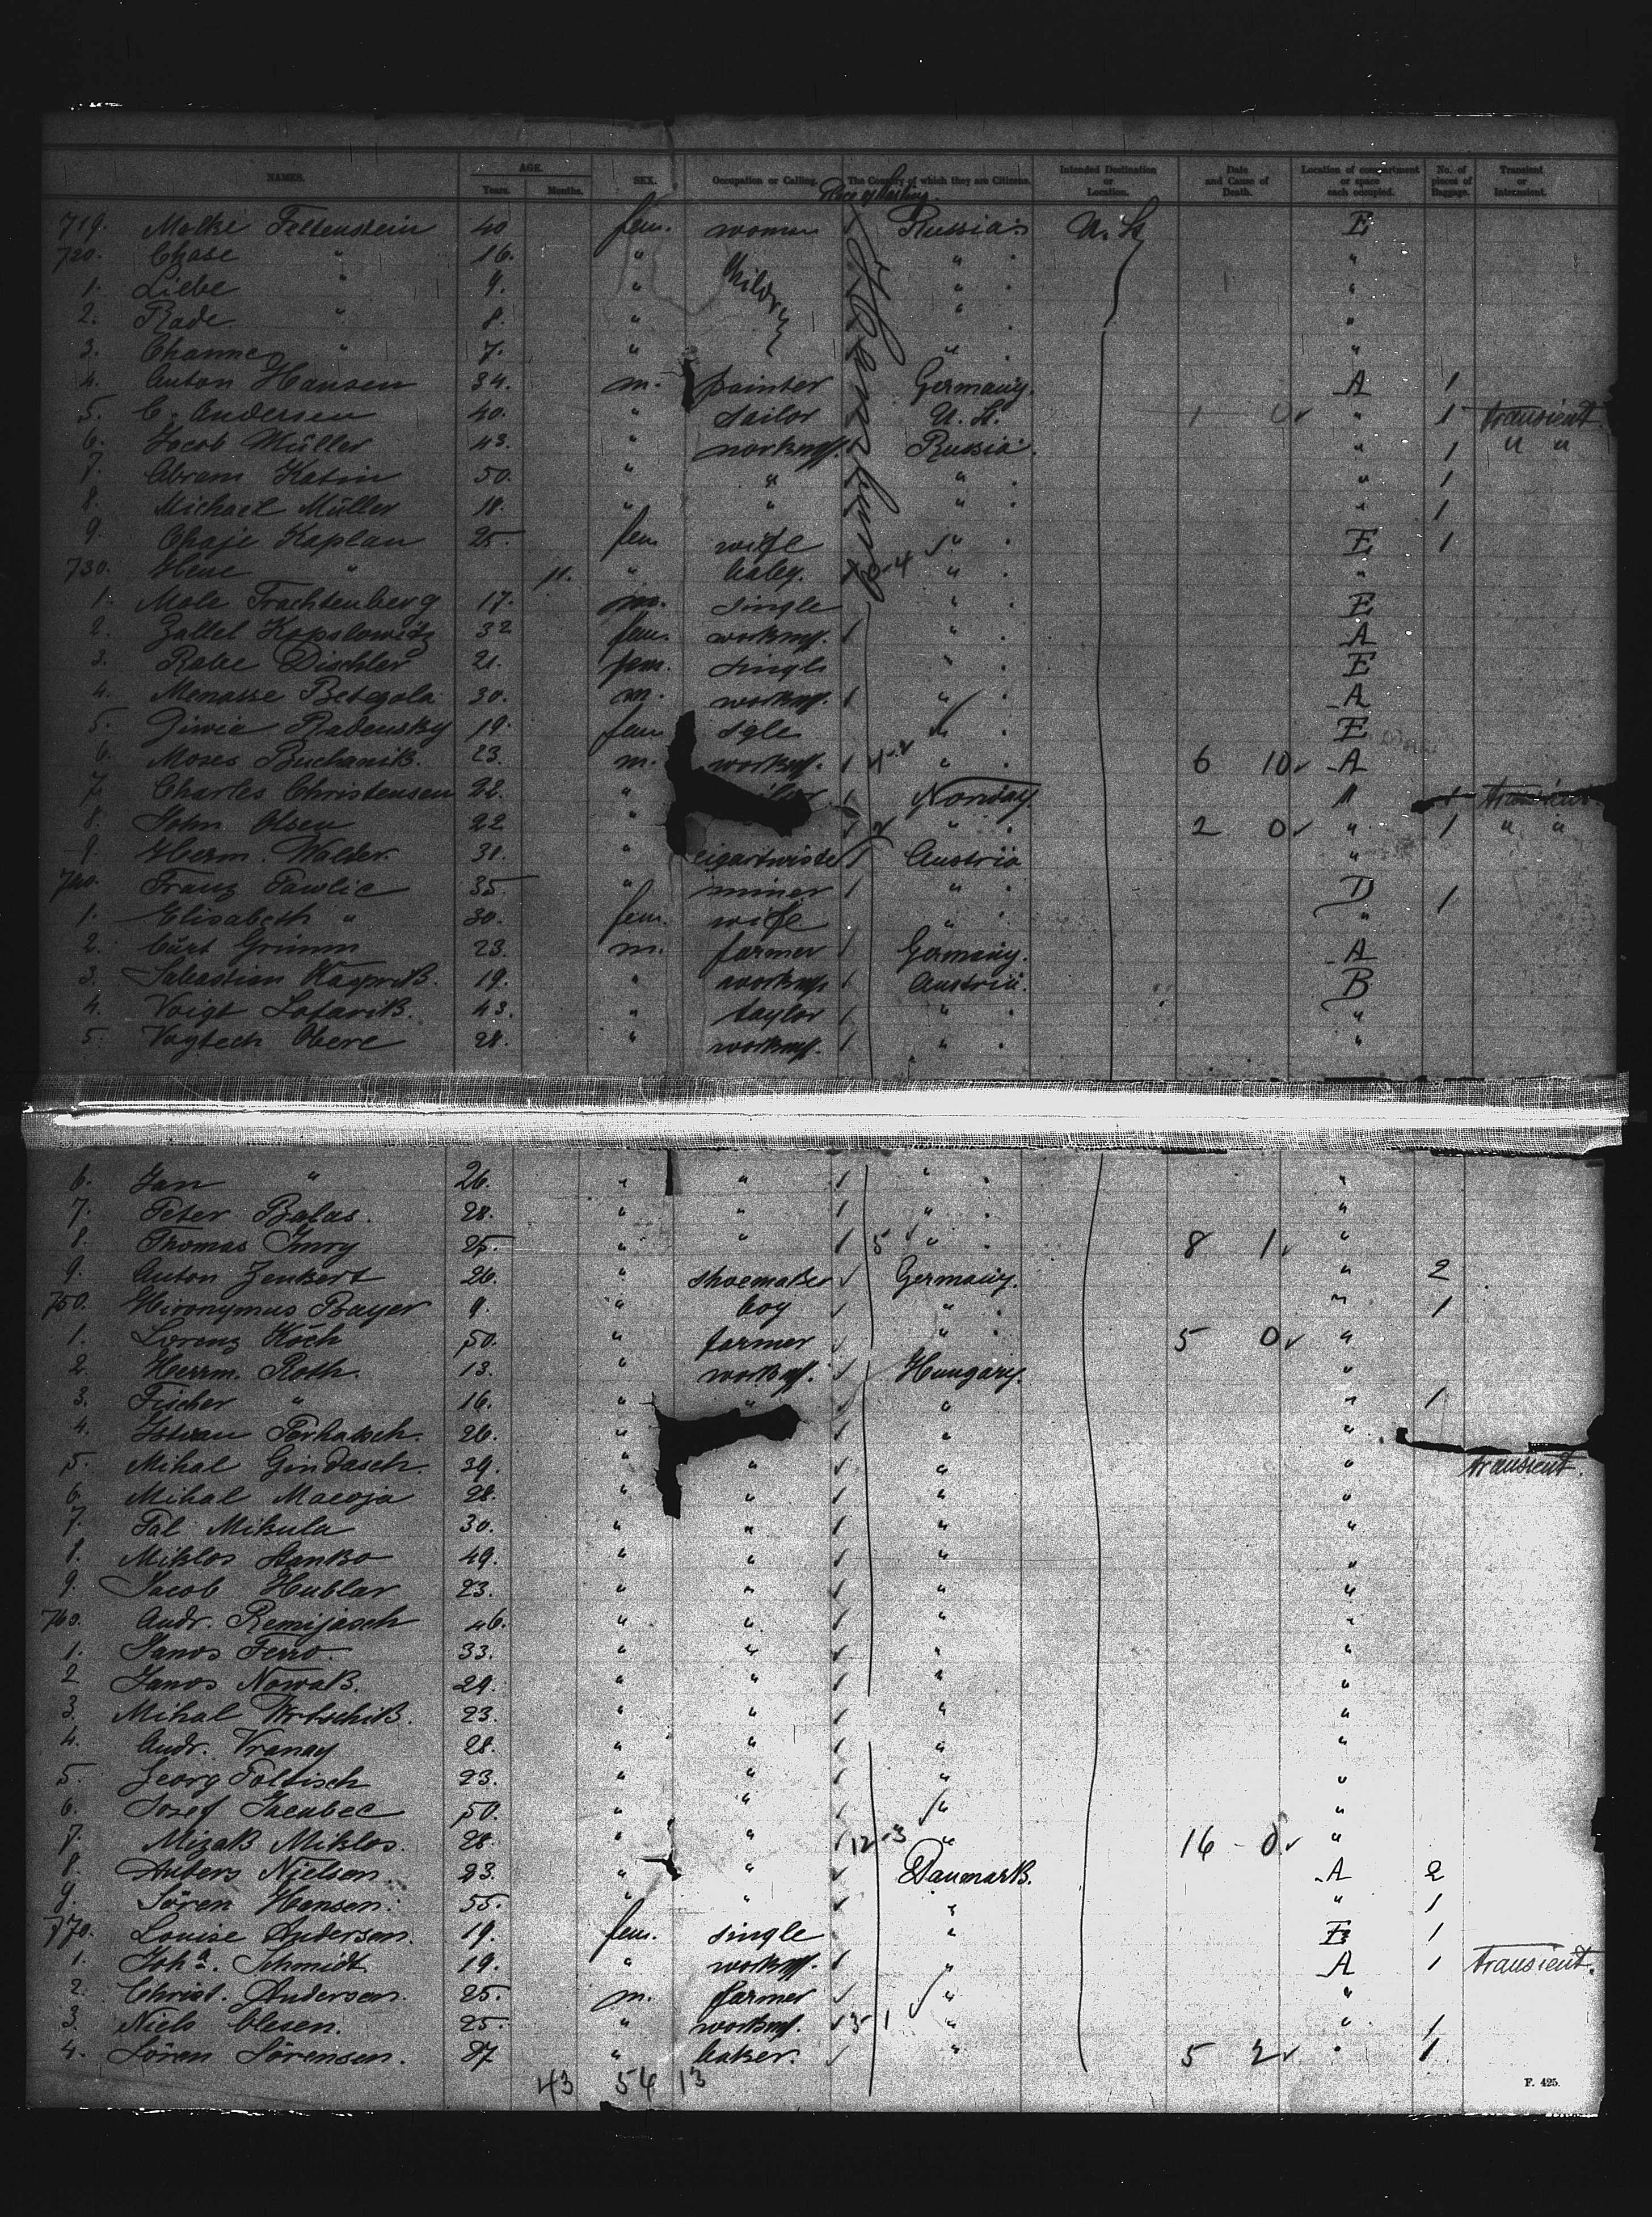 NAMES. AGE. Years. Months. SEX. Occupation or Calling. The Country of which they are Citizens. Intended Destination or Location. Date and Cause of Death. Location of compartment or space each occupied. No. of pieces of Baggage. Transient or Intransient.
Place of
719. Molke Fellenstein 40 fem. woman 1 Russia. U. St. E
720. Chase " 16. " " "
1. Liebe " 9. " Childr. " "
2. Rade. " 8. " " "
3. Channe " 7. " " "
4. Anton Hansen 34. m. painter Germany. A 1
5. C. Andersen 40. " sailor U. St. 1 0 " 1 transient.
6. Jacob Müller 43. " workmn. Russia. " 1 " "
7. Abram Katin 50. " " " " 1
8. Michael Müller 18. " " " " 1
9. Chaje Kaplan 25. fem wife " E 1
730. Hene " 11. " baby. " "
1. Mole Trachtenberg 17. m. single " E
2. Zallel Kopslowitz 32 fem. workmn. 1 " A
3. Rake Dischler 21. fem. single " E
4. Menasse Betegola 30. m. workmn. 1 " A
5. Ziwie Radensky 19. fem sgle " E
6. Moses Buchanik. 23. m. workmn. 1 " 6 10 A
7. Charles Christensen 22. " Norway " 1 transient
8. John Olsen 22 " " 2 0 " 1 " "
9. Herm. Walder. 31. " cigartwister 1 Austria "
740. Franz Pawlic 35. " miner 1 " D 1
1. Elisabeth " 30. fem. wife " "
2. Curt Grimm 23. m. farmer 1 Germany. A
3. Sabastian Kasprik. 19. " workmn 1 Austria. B
4. Voigt Lotarik. 43. " taylor 1 " "
5. Voytech Obere 28. " workmn. 1 " "
6. Jan " 26. " " 1 " "
7. Peter Balas. 28. " " 1 " "
8. Thomas Imry 25. " " 1 5 " 8 1 "
9. Anton Zenkert 26. " shoemaker Germany. " 2
750. Hironymus Bayer 9. " boy " " 1
1. Lorenz Koch 50. " farmer " 5 0 "
2. Herrm. Roth. 13. " workmn. Hungary. "
3. Fischer " 16. " " " " 1
4. Istvan Perhatsch. 26. " " "
5. Mihal Gindasch. 39. " " " " transient.
6. Mihal Macoja 28. " " " "
7. Pal Mikula 30. " " " "
8. Miklos Stanko 49. " " " "
9. Jacob Hublar 23. " " " "
760. Andr. Remijasch 46. " " " "
1. Janos Ferro. 33. " " " "
2 Janos Nowak. 29. " " " "
3. Mihal 23. " " " "
4. Andr. Vranay 28. " " " "
5. Georg Poltisch 23. " " " "
6. Josef Jacubec 50. " " " "
7. Mizak Miklos. 28. " " 12-3 " 16 - 0 "
8. Anders Nielsen 23. " " Danmark. A 2
9. Sören Hansen. 55. " " " " 1
770. Louise Andersen. 19. fem. single " E 1
1. Joha. Schmidt. 19. " workmn. 1 " A 1 transient.
2. Christ. Andersen. 25. m. farmer " "
3. Niels Olesen. 25. " workmn. 3 1 " " 1
4. Sören Sörensen. 27 " baker. " 5 2 " 1
43 54 13
F. 425.